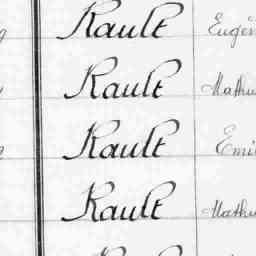 Rault Eugèn
Rault Mathu
Rault Emi
Rault Mathu